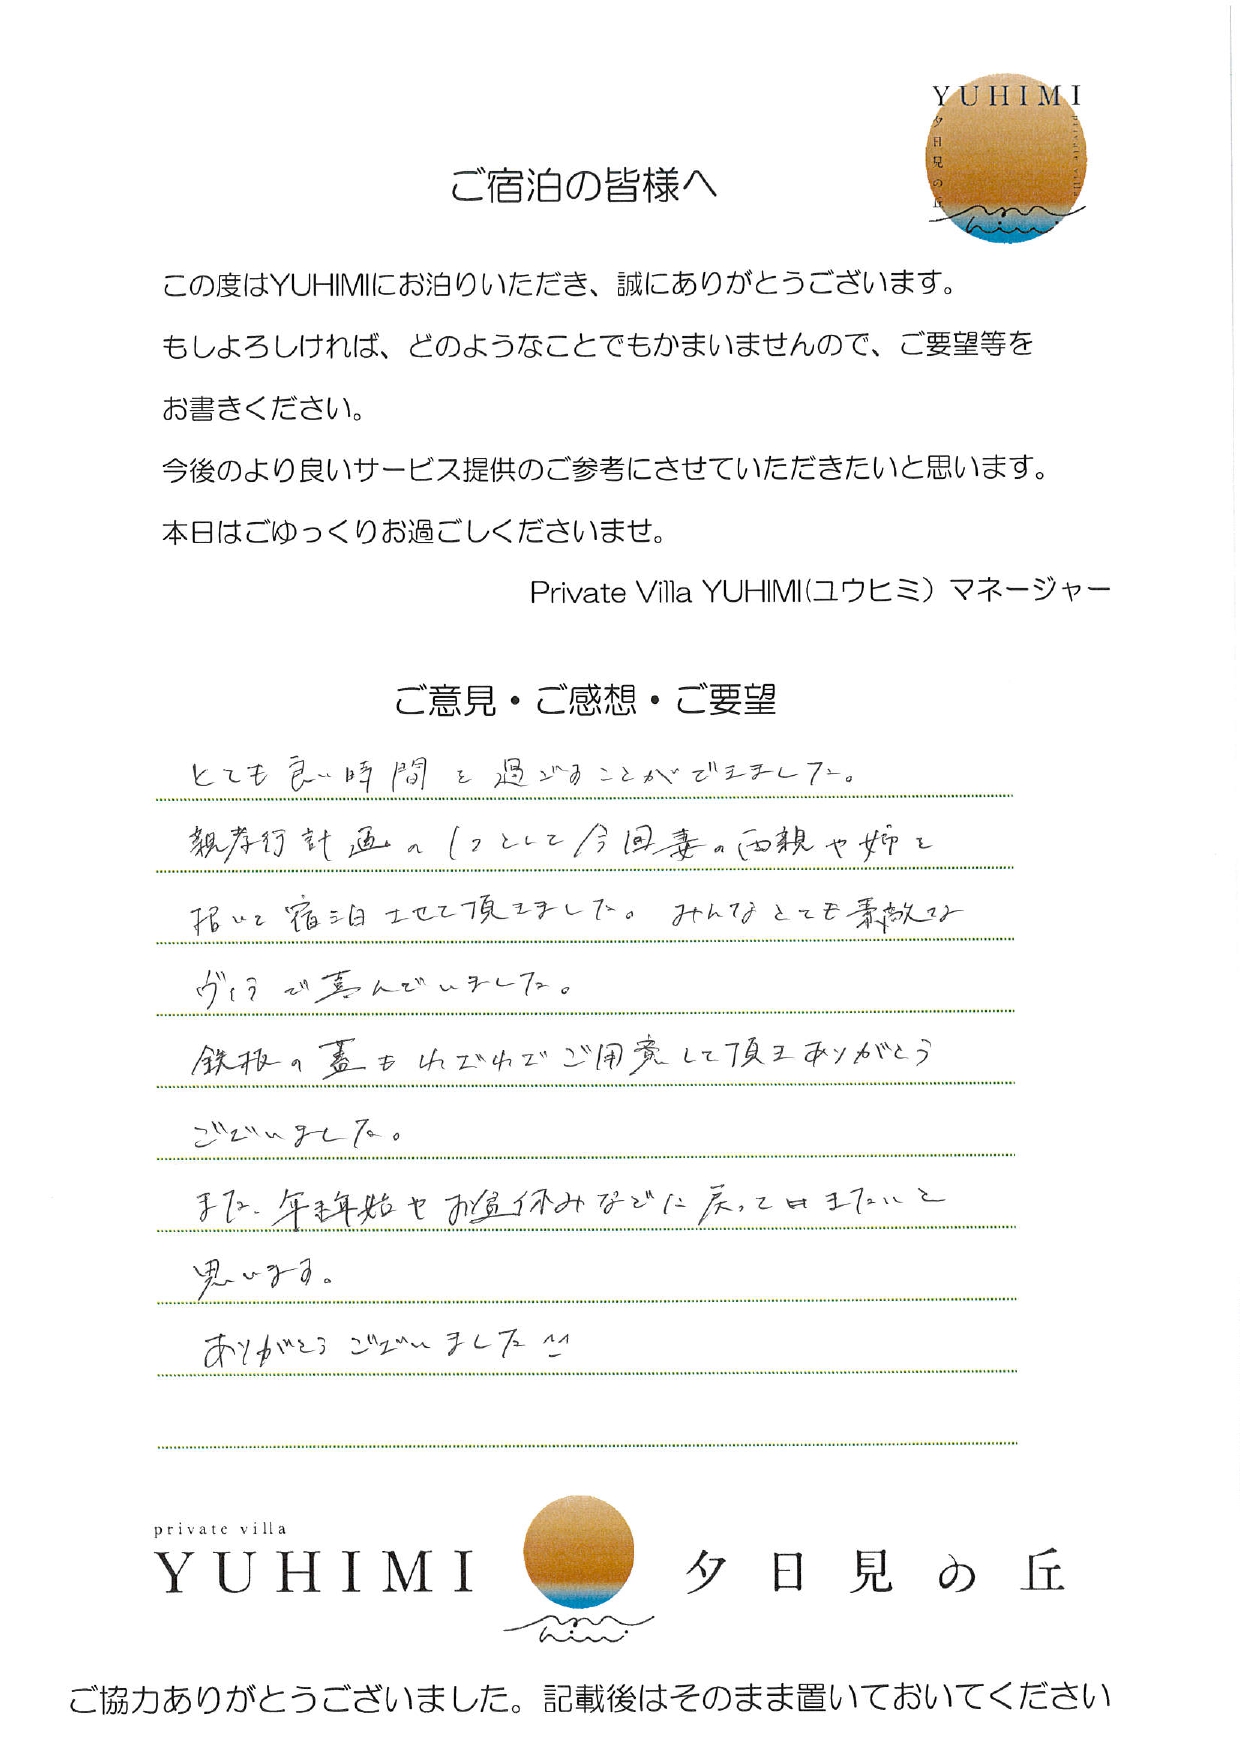 YUHIMI
夕日見の丘
ご宿泊の皆様へ
この度はYUHIMIにお泊りいただき、誠にありがとうございます。
もしよろしければ、どのようなことでもかまいませんので、ご要望等を
お書きください。
今後のより良いサービス提供のご参考にさせていただきたいと思います。
本日はごゆっくりお過ごしくださいませ。
Private Villa YUHIMI(ユウヒミ）マネージャー
ご意見・ご感想・ご要望
とても良い時間を過ごすことができました。
親孝行計画の1つとして今回妻の両親や姉を
招いて宿泊させて頂きました。みんなとても素敵な
ヴィラで喜んでいました。
鉄板の蓋もわざわざご用意して頂きありがとう
ございました。
また、年末年始やお盆休みなどに戻ってきたいと
思います。
ありがとうございました^^
private villa
YUHIMI 夕日見の丘
ご協力ありがとうございました。記載後はそのまま置いておいてください